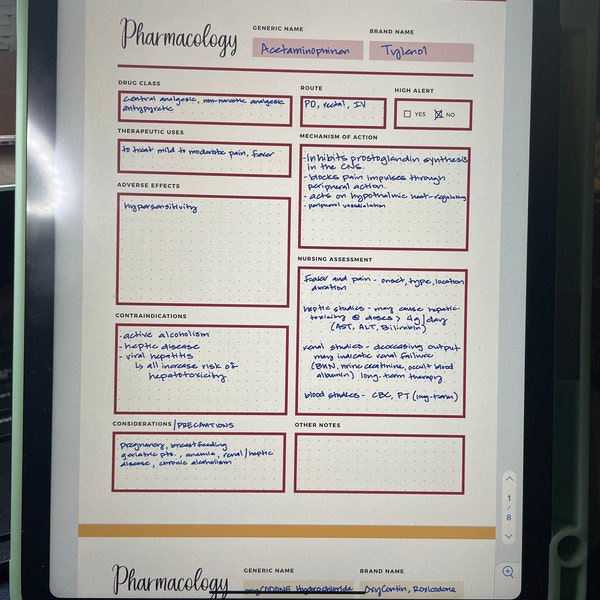 Pharmacology
GENERIC NAME
Acetaminophen
BRAND NAME
Tylenol
DRUG CLASS
Central analgesic, non-narcotic analgesic
antipyretic
ROUTE
PO, rectal, IV
HIGH ALERT
YES NO
THERAPEUTIC USES
to treat mild to moderate pain, fever
MECHANISM OF ACTION
-inhibits prostoglandin synthesis
in the CNS.
-blocks pain impulses through
peripheral action.
-acts on hypothalmic heat-regulating
-peripheral vasodialation
ADVERSE EFFECTS
hypersensitivity
NURSING ASSESSMENT
fever and pain - onset, type, location
duration
heptic studies - may cause hepatic-
toxicity @ doses > 4g/day
(AST, ALT, Bilirubin)
renal studies - decreasing output
may indicate renal failure
(BUN, urine creatinine, occult blood
albumin) long-term therapy.
blood studies - CBC, PT (long-term)
CONTRAINDICATIONS
-active alcoholism
-heptic disease
-viral hepatitis
↳ all increase risk of
hepatotoxicity
CONSIDERATIONS /PRECAUTIONS
pregnancy, breastfeeding
geriatric pts., anemia, renal/heptic
disease, chronic alcoholism
OTHER NOTES
1
/
8
Pharmacology
GENERIC NAME
oxyCODONE Hydrochloride
BRAND NAME
OxyContin, Roxicodone